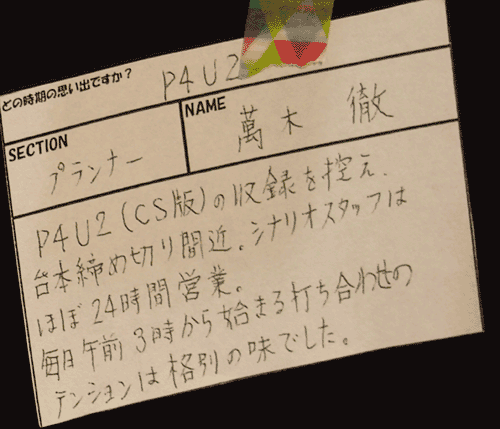 どの時期の思い出ですか?
P4U2
SECTION
プランナー
NAME
萬木 徹
P4U2(CS版)の収録を控え、
台本締め切り間近。シナリオスタッフは
ほぼ24時間営業。
毎日午前3時から始まる打ち合わせの
テンションは格別の味でした。